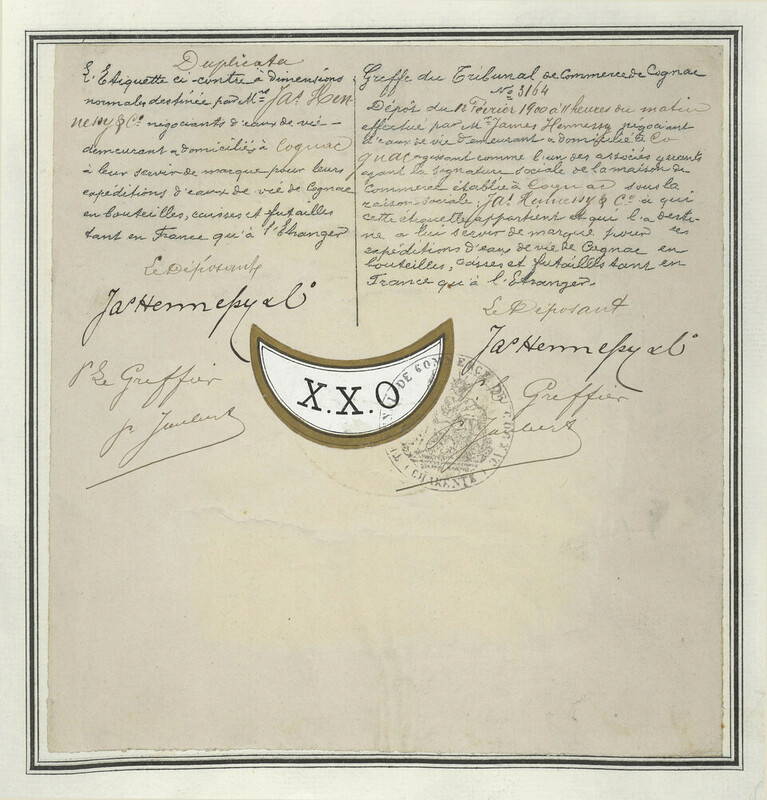 Duplicata
L'Etiquette ci-contre à dimensions
normales destinée par Mrs Jas Hen-
nessy & Co négociants d'eaux de vie
demeurant & domiciliés à Cognac
à leur servir de marque pour leurs
expéditions d'eaux de vie de Cognac
en bouteilles, caisses et futailles
tant en France qu'à l'Etranger
Le Déposant
Jas Hennessy & Co
Pr Le Greffier
Greffe du Tribunal de Commerce de Cognac
No 3164
Dépôt du Février 1900 à 11 heures du matin
effectué par Mr James Hennessy négociant
d'eaux de vie demeurant & domicilié à Co
gnac agissant comme l'un des associés gérants
ayant la signature sociale de la maison de
Commerce établie à Cognac sous la
raison sociale Jas Hennessy & Co à qui
cette étiquette appartient et qui l'a desti
né a lui servir de marque pour ses
expéditions d'eaux de vie de Cognac en
bouteilles, caisses et futailles tant en
France qu'à l'Etranger.
Le Déposant
Jas Hennessy & Co
Greffier
X.X.O
TRIBUNAL DE COMMERCE DE COGNAC
(CHARENTE)